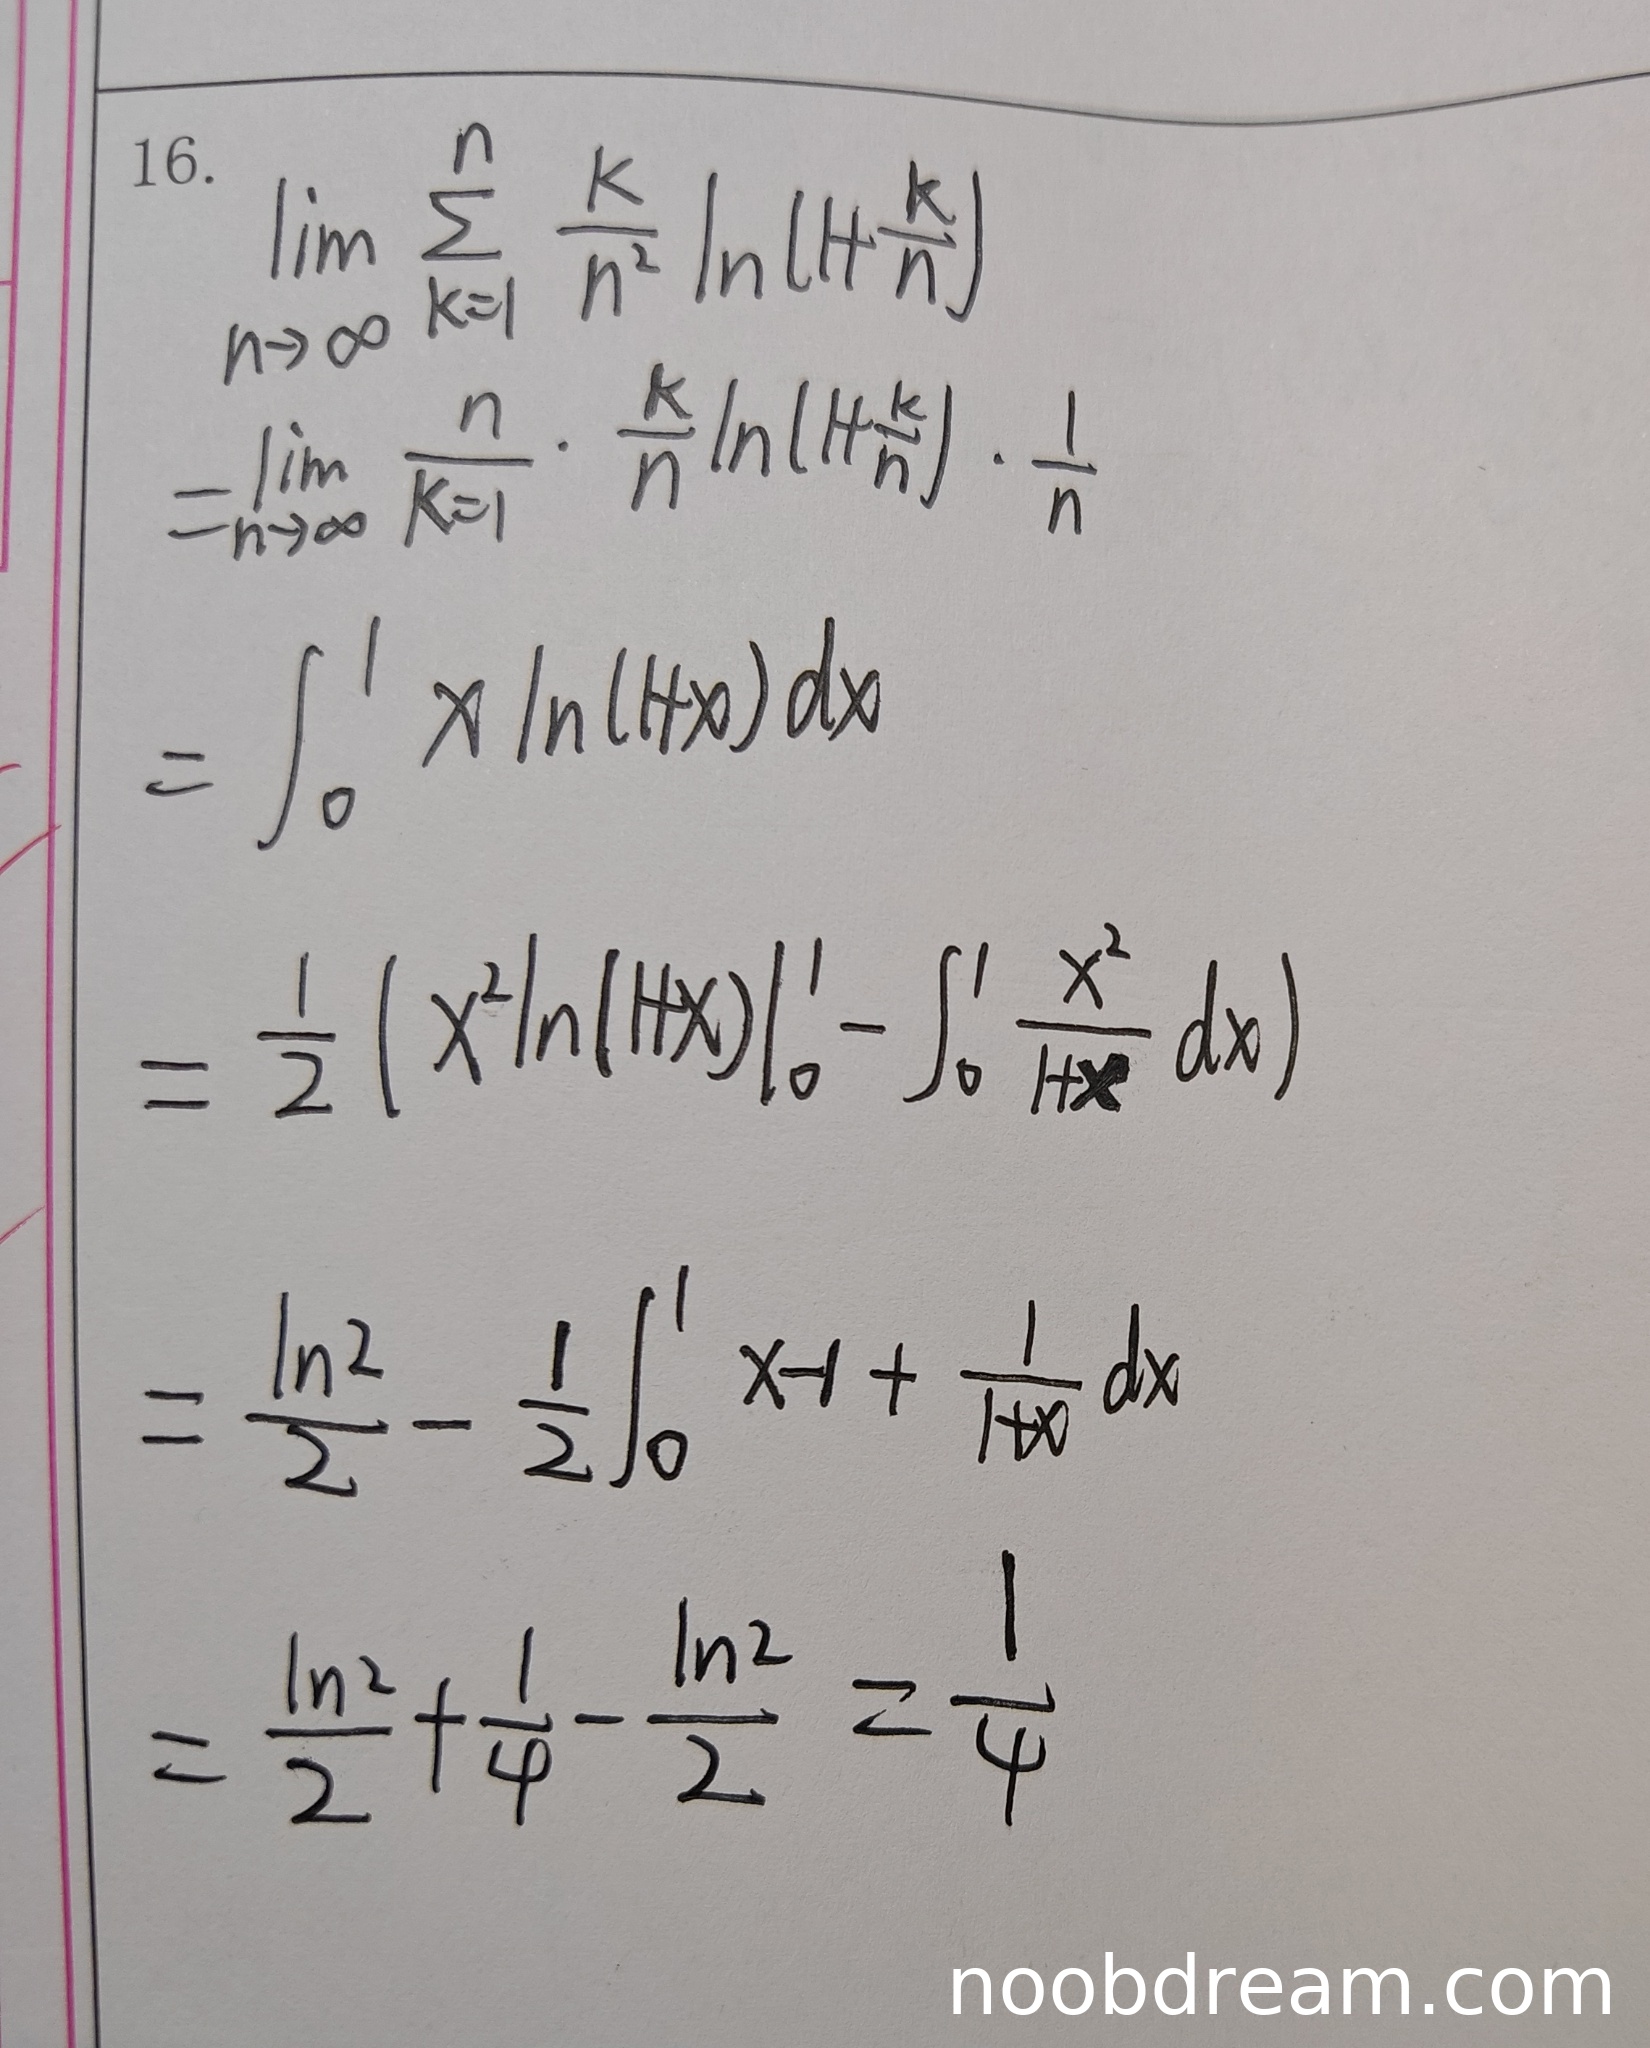 16. lim_{n→∞} Σ_{k=1}^{n} k/n² ln(1+k/n)
= lim_{n→∞} n/k=1 · k/n ln(1+k/n) · 1/n
= ∫₀¹ x ln(1+x) dx
= 1/2 ( x² ln(1+x) |₀¹ − ∫₀¹ x²/(1+x) dx )
= ln2/2 − 1/2 ∫₀¹ x−1 + 1/(1+x) dx
= ln2/2 + 1/4 − ln2/2 = 1/4
noobdream.com